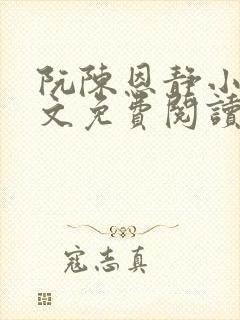 阮陳恩靜小
文免費閱讀
寇志真